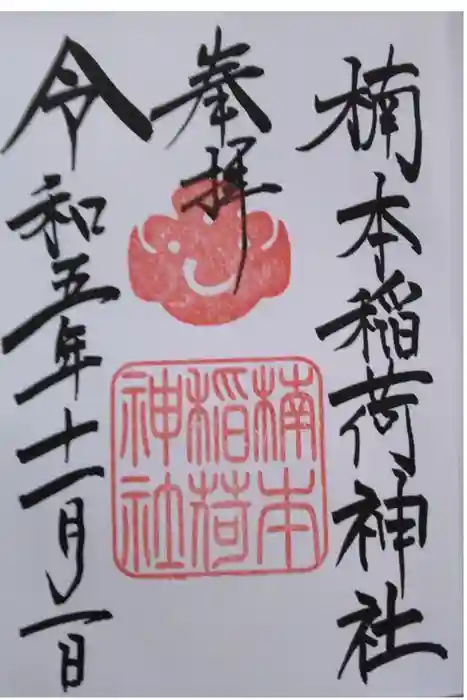 楠本稲荷神社
奉拝
楠本
稲荷
神社
令和五年十一月一日